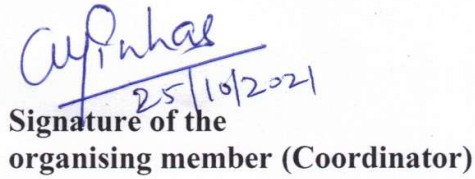 25/10/2021
Signature of the
organising member (Coordinator)